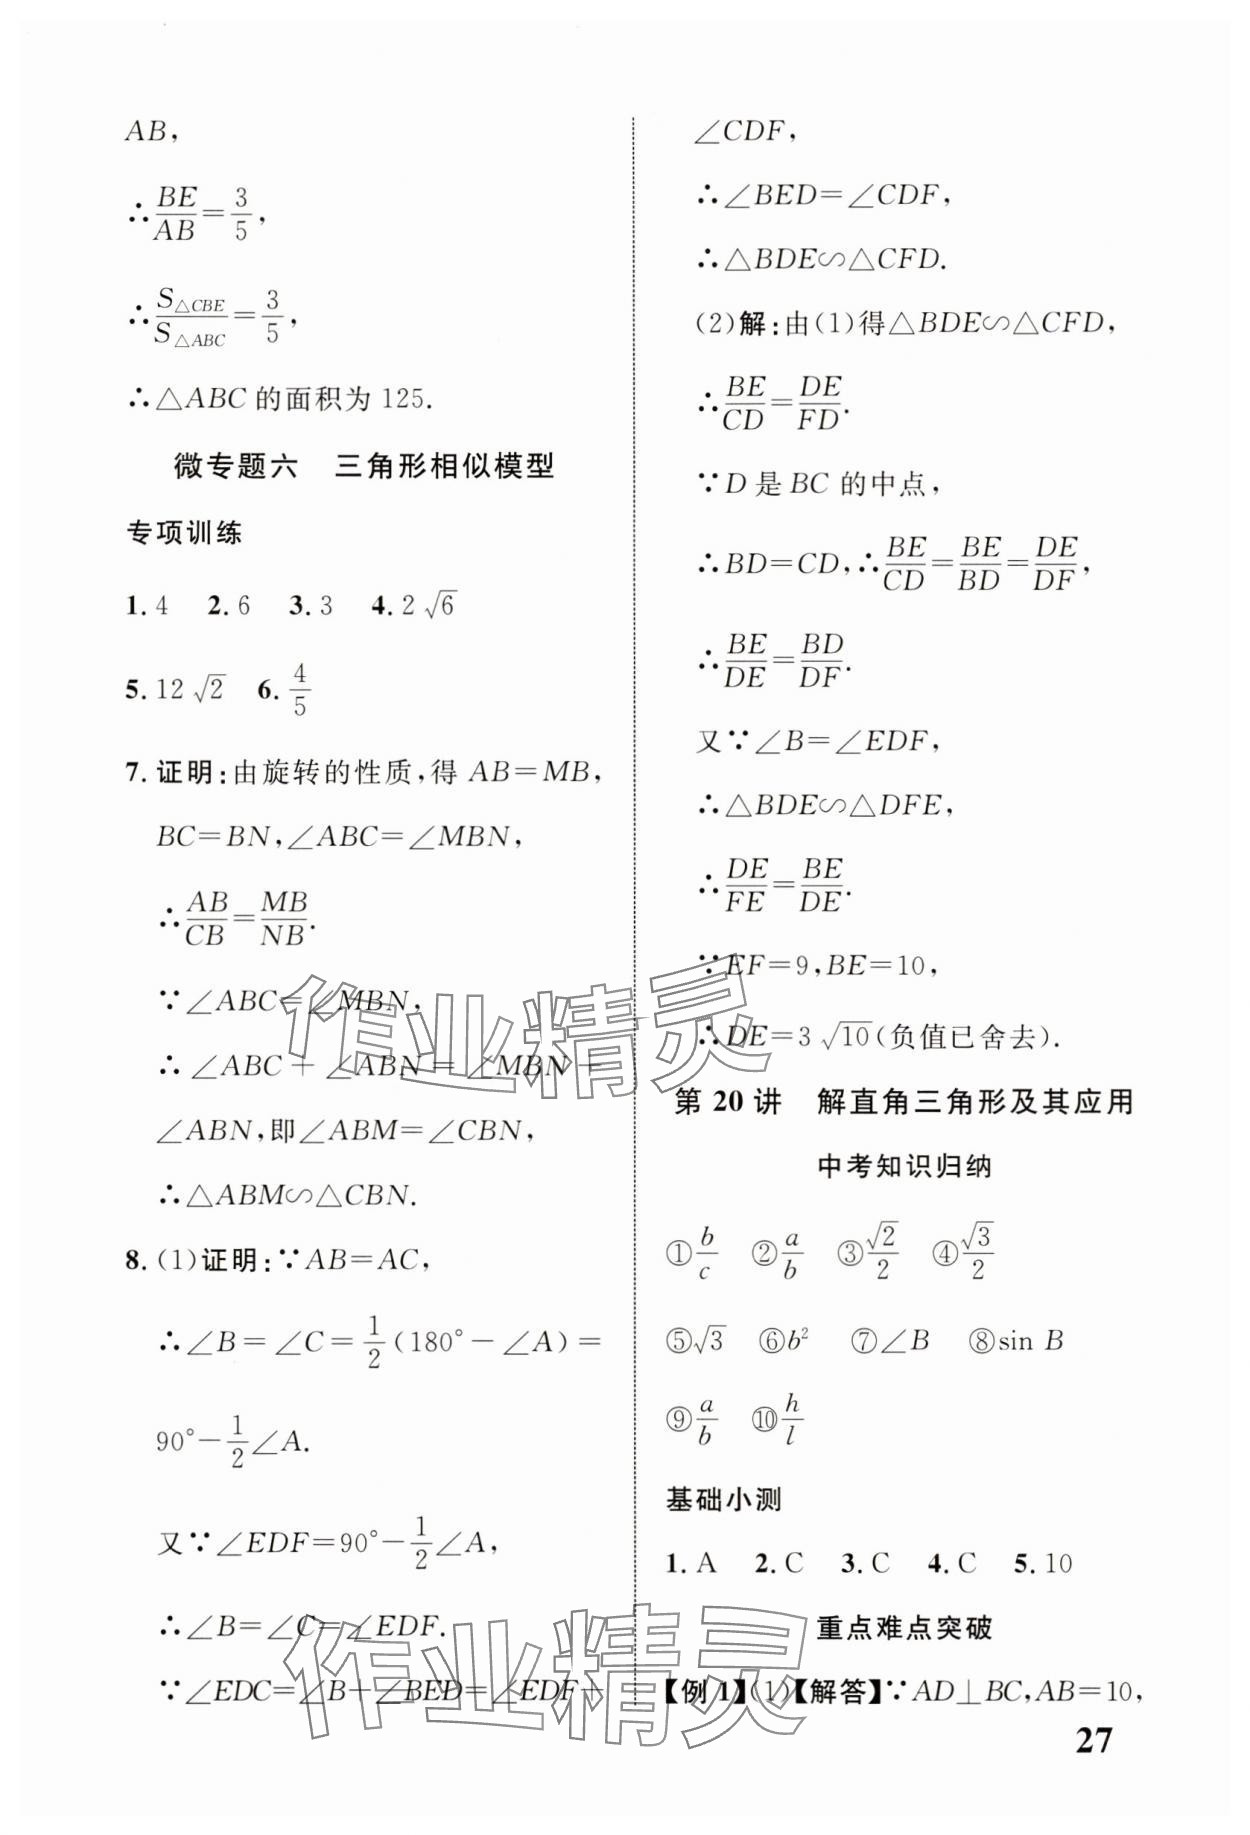 AB,
∴BE/AB=3/5,
∴S△CBE/S△ABC=3/5,
∴△ABC 的面积为 125.
微专题六 三角形相似模型
专项训练
1. 4 2. 6 3. 3 4. 2√6
5. 12√2 6. 4/5
7. 证明:由旋转的性质,得 AB=MB,
BC=BN,∠ABC=∠MBN,
∴AB/CB=MB/NB.
∵∠ABC=∠MBN,
∴∠ABC+∠ABN=∠MBN+
∠ABN,即∠ABM=∠CBN,
∴△ABM∽△CBN.
8. (1)证明:∵AB=AC,
∴∠B=∠C=1/2(180°-∠A)=
90°-1/2∠A.
又∵∠EDF=90°-1/2∠A,
∴∠B=∠C=∠EDF.
∵∠EDC=∠B+∠BED=∠EDF+
∠CDF,
∴∠BED=∠CDF,
∴△BDE∽△CFD.
(2)解:由(1)得△BDE∽△CFD,
∴BE/CD=DE/FD.
∵D 是 BC 的中点,
∴BD=CD,∴BE/CD=BE/BD=DE/DF,
∴BE/DE=BD/DF.
又∵∠B=∠EDF,
∴△BDE∽△DFE,
∴DE/FE=BE/DE.
∵EF=9,BE=10,
∴DE=3√10(负值已舍去).
第 20 讲 解直角三角形及其应用
中考知识归纳
①b/c ②a/b ③√2/2 ④√3/2
⑤√3 ⑥b² ⑦∠B ⑧sin B
⑨a/b ⑩h/l
基础小测
1. A 2. C 3. C 4. C 5. 10
重点难点突破
【例 1】(1)【解答】∵AD⊥BC,AB=10,
27
作业精灵
作业精灵